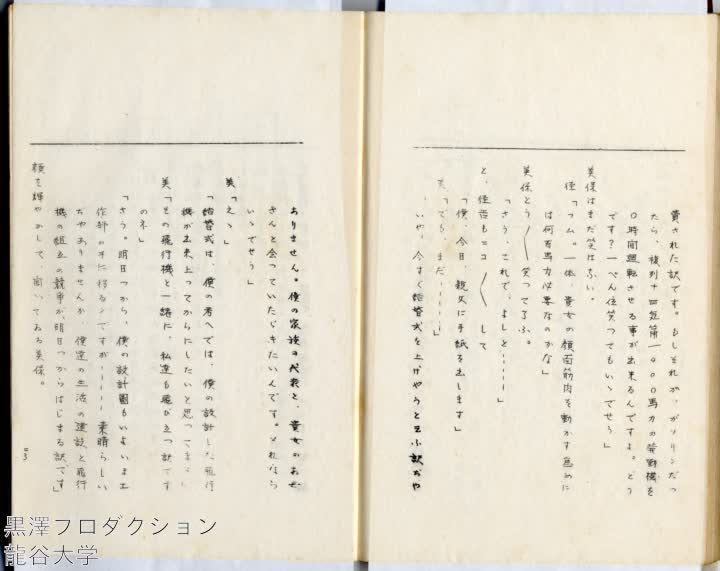 費された訳です。もしそれが、ガソリンだつ
たら、複列十四気筒一〇〇〇馬力の発動機を
〇時間廻転させる事が出来るんですよ。どう
です？一ぺん位笑つてもいゝでせう」
美保はまだ笑はない。
信「フム。一体、貴女の顔面筋肉を動かす為めに
は何百馬力必要なのかな」
美保とう〳〵笑つて了ふ。
「さう、これで、よしと……」
と、信吾もニコ〳〵して
「僕、今日、親父に手紙を出します」
美「でも、まだ……」
、いや、今すぐ結婚式を上げやうと云ふ訳ぢや
ありません。僕の家族の代表と、貴女のお母
さんと会つていたゞきたいんです。それなら
いゝでせう」
美「えゝ」
「結婚式は、僕の考へでは、僕の設計した飛行
機が出来上つてからにしたいと思つてます」
美「その飛行機と一緒に、私達も飛び立つ訳です
のネ」
「さう。明日つから、僕の設計図もいよいよ工
作部の手に移るンですが…… 素晴らしい
ぢやありませんか、僕達の生活の建設と飛行
機の組立の競争が明日つからはじまる訳です」
顔を輝やかして、聞いてゐる美保。
黒澤プロダクション
龍谷大学